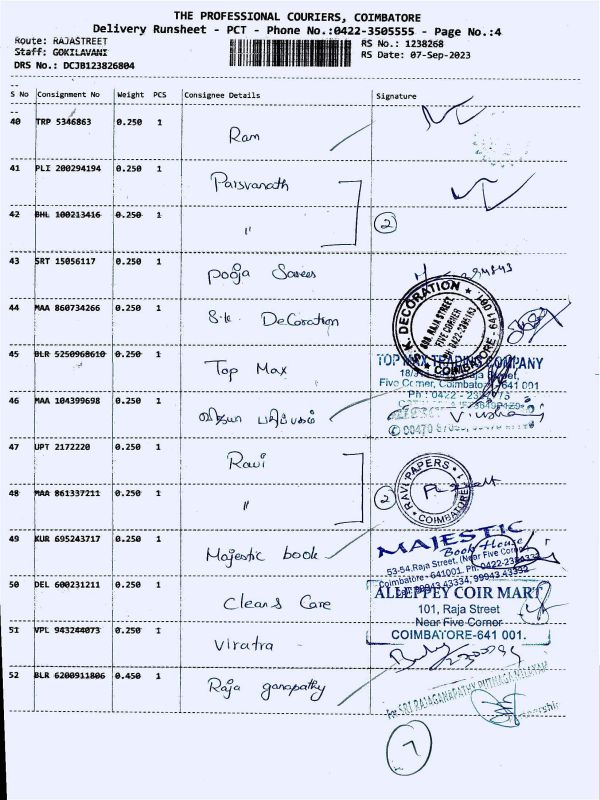 THE PROFESSIONAL COURIERS, COIMBATORE
Delivery Runsheet - PCT - Phone No.:0422-3505555 - Page No.:4
Route: RAJASTREET RS No.: 1238268
Staff: GOKILAVANI RS Date: 07-Sep-2023
DRS No.: DCJB123826804
S No Consignment No Weight PCS Consignee Details Signature
40 TRP 5346863 0.250 1 Ram
41 PLI 200294194 0.250 1 Parsvanath
42 BHL 100213416 0.250 1 " 2
43 SRT 15056117 0.250 1 Pooja Sarees
44 MAA 860734266 0.250 1 S.K. Decoration
S.K. DECORATION
RAJA STREET
FIVE CORNER
COIMBATORE - 641 001.
45 BLR 5250968610 0.250 1 Top Max
TOP MAX TRADING COMPANY
Raja Street,
Five Corner, Coimbatore - 641 001
46 MAA 104399698 0.250 1 விஜயா பதிப்பகம்
47 UPT 2172220 0.250 1 Ravi
RAVI PAPERS
COIMBATORE
48 MAA 861337211 0.250 1 " 2
49 KUR 695243717 0.250 1 Majestic book
MAJESTIC
Book House
53-54, Raja Street, (Near Five Corner)
Coimbatore - 641001. Ph: 0422-
99943 43334, 99943 43332
50 DEL 600231211 0.250 1 Cleans Care
ALLEPPEY COIR MART
101, Raja Street
Near Five Corner
COIMBATORE-641 001.
51 VPL 943244073 0.250 1 Viratra
52 BLR 6200911806 0.450 1 Raja ganapathy
For SRI RAJAGANAPATHY PUTHAGA NILAYAM
7